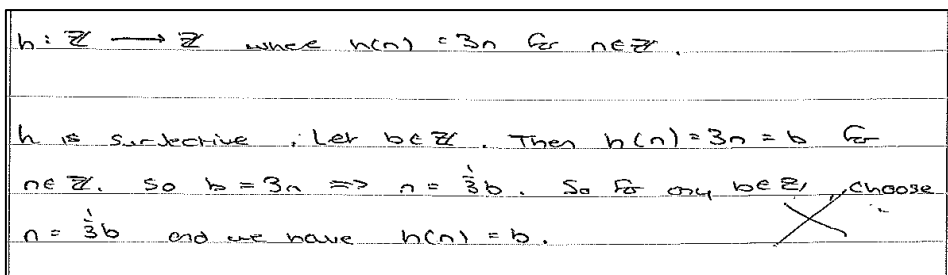 h: ℤ → ℤ where h(n) = 3n for n∈ℤ.
h is surjective : Let b∈ℤ. Then h(n) = 3n = b for
n∈ℤ. So b = 3n => n = ⅓b. So for any b∈ℤ, choose
n = ⅓b and we have h(n) = b.